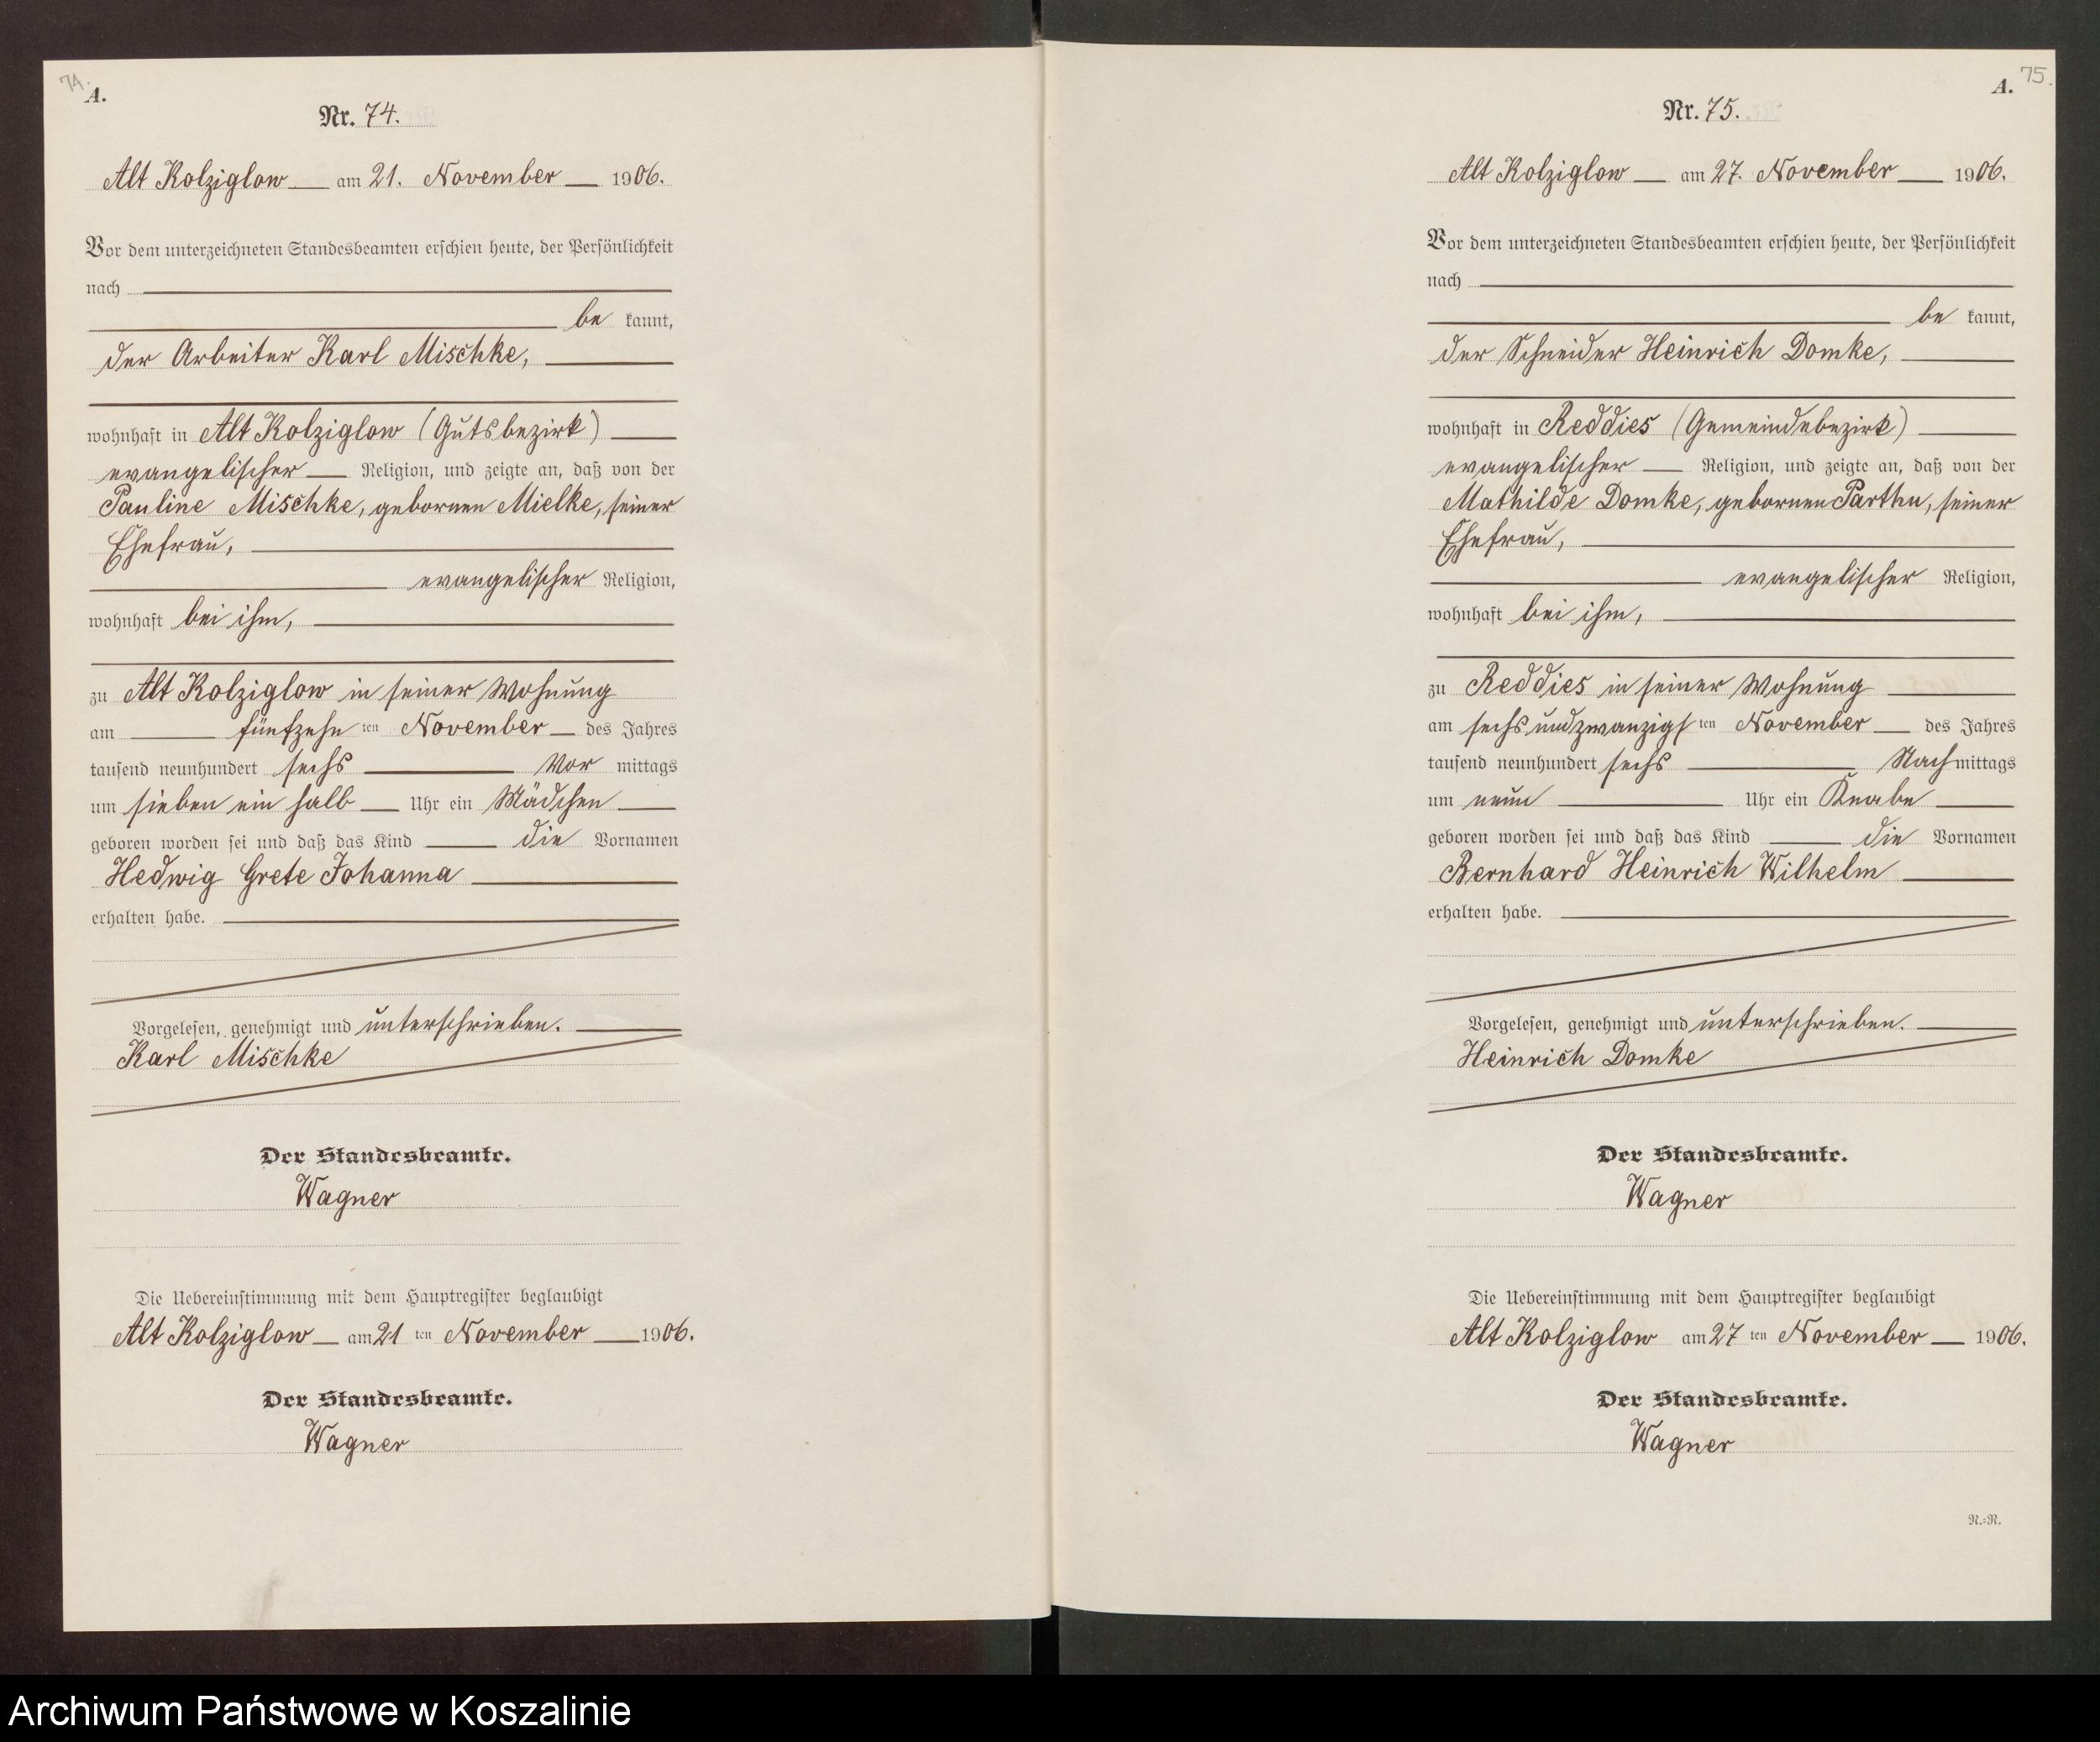 74.
A.
Nr. 74.
Alt Kolziglow am 21. November 1906.
Vor dem unterzeichneten Standesbeamten erschien heute, der Persönlichkeit
nach
be kannt,
der Arbeiter Karl Mischke,
wohnhaft in Alt Kolziglow (Gutsbezirk)
evangelischer Religion, und zeigte an, daß von der
Pauline Mischke, gebornen Mielke, seiner
Ehefrau,
evangelischer Religion,
wohnhaft bei ihm,
zu Alt Kolziglow in seiner Wohnung
am fünfzehn ten November des Jahres
tausend neunhundert sechs Vor mittags
um sieben ein halb Uhr ein Mädchen
geboren worden sei und daß das Kind die Vornamen
Hedwig Grete Johanna
erhalten habe.
Vorgelesen, genehmigt und unterschrieben.
Karl Mischke
Der Standesbeamte.
Wagner
Die Uebereinstimmung mit dem Hauptregister beglaubigt
Alt Kolziglow am 21 ten November 1906.
Der Standesbeamte.
Wagner
75.
A.
Nr. 75.
Alt Kolziglow am 27. November 1906.
Vor dem unterzeichneten Standesbeamten erschien heute, der Persönlichkeit
nach
be kannt,
der Schneider Heinrich Domke,
wohnhaft in Reddies (Gemeindebezirk)
evangelischer Religion, und zeigte an, daß von der
Mathilde Domke, gebornen Parthe, seiner
Ehefrau,
evangelischer Religion,
wohnhaft bei ihm,
zu Reddies in seiner Wohnung
am sechs und zwanzigs ten November des Jahres
tausend neunhundert sechs Nach mittags
um neun Uhr ein Knabe
geboren worden sei und daß das Kind die Vornamen
Bernhard Heinrich Wilhelm
erhalten habe.
Vorgelesen, genehmigt und unterschrieben.
Heinrich Domke
Der Standesbeamte.
Wagner
Die Uebereinstimmung mit dem Hauptregister beglaubigt
Alt Kolziglow am 27 ten November 1906.
Der Standesbeamte.
Wagner
N.=R.
Archiwum Państwowe w Koszalinie